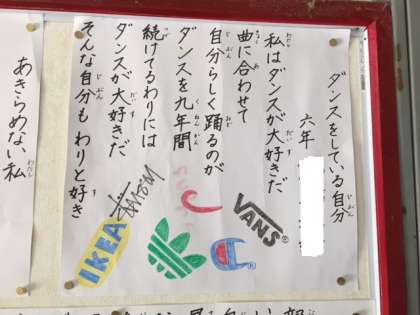 ダンスをしている自分
六年
私はダンスが大好きだ
曲に合わせて
自分らしく踊るのが
ダンスを九年間
続けてるわりには
ダンスが大好きだ
そんな自分もわりと好き
VANS
IKEA
あきらめない私